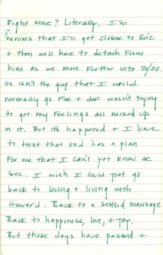 Right move? Literally, I'm
nervous that I'll get closer to Eric
& then will have to detach from
him as we move further into 20/20.
He isn't the guy that I would
normally go for & don't wasn't trying
to get my feelings all mixed up
in it. But it happened & I have
to trust that God has a plan
for me that I can't yet know or
see. I wish I could just go
back to loving & living with
Howard. Back to a settled marriage
Back to happiness, love, & joy.
But those days have passed &